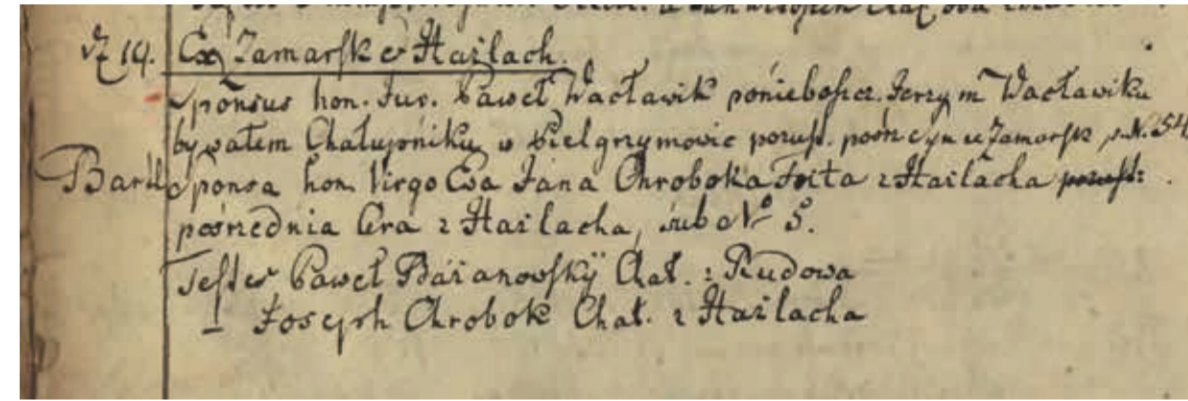 19. Ex Zamarsk et Hażlach.
Sponsus hon. Juv. Paweł Wacławik poniebosz. Jerzym Wacławiku
bywałem Chałupniku w Pielgrzymowic pozust. syn z Zamarsk s. N. 54
Sponsa hon. Virgo Ewa Jana Chroboka Foita z Hażlacha pozust:
pośrzednia Cera z Hażlacha, sub No 5.
Testes Paweł Bażanowsky Chał. z Rudowa
— Joseph Chrobok Chał. z Hażlacha